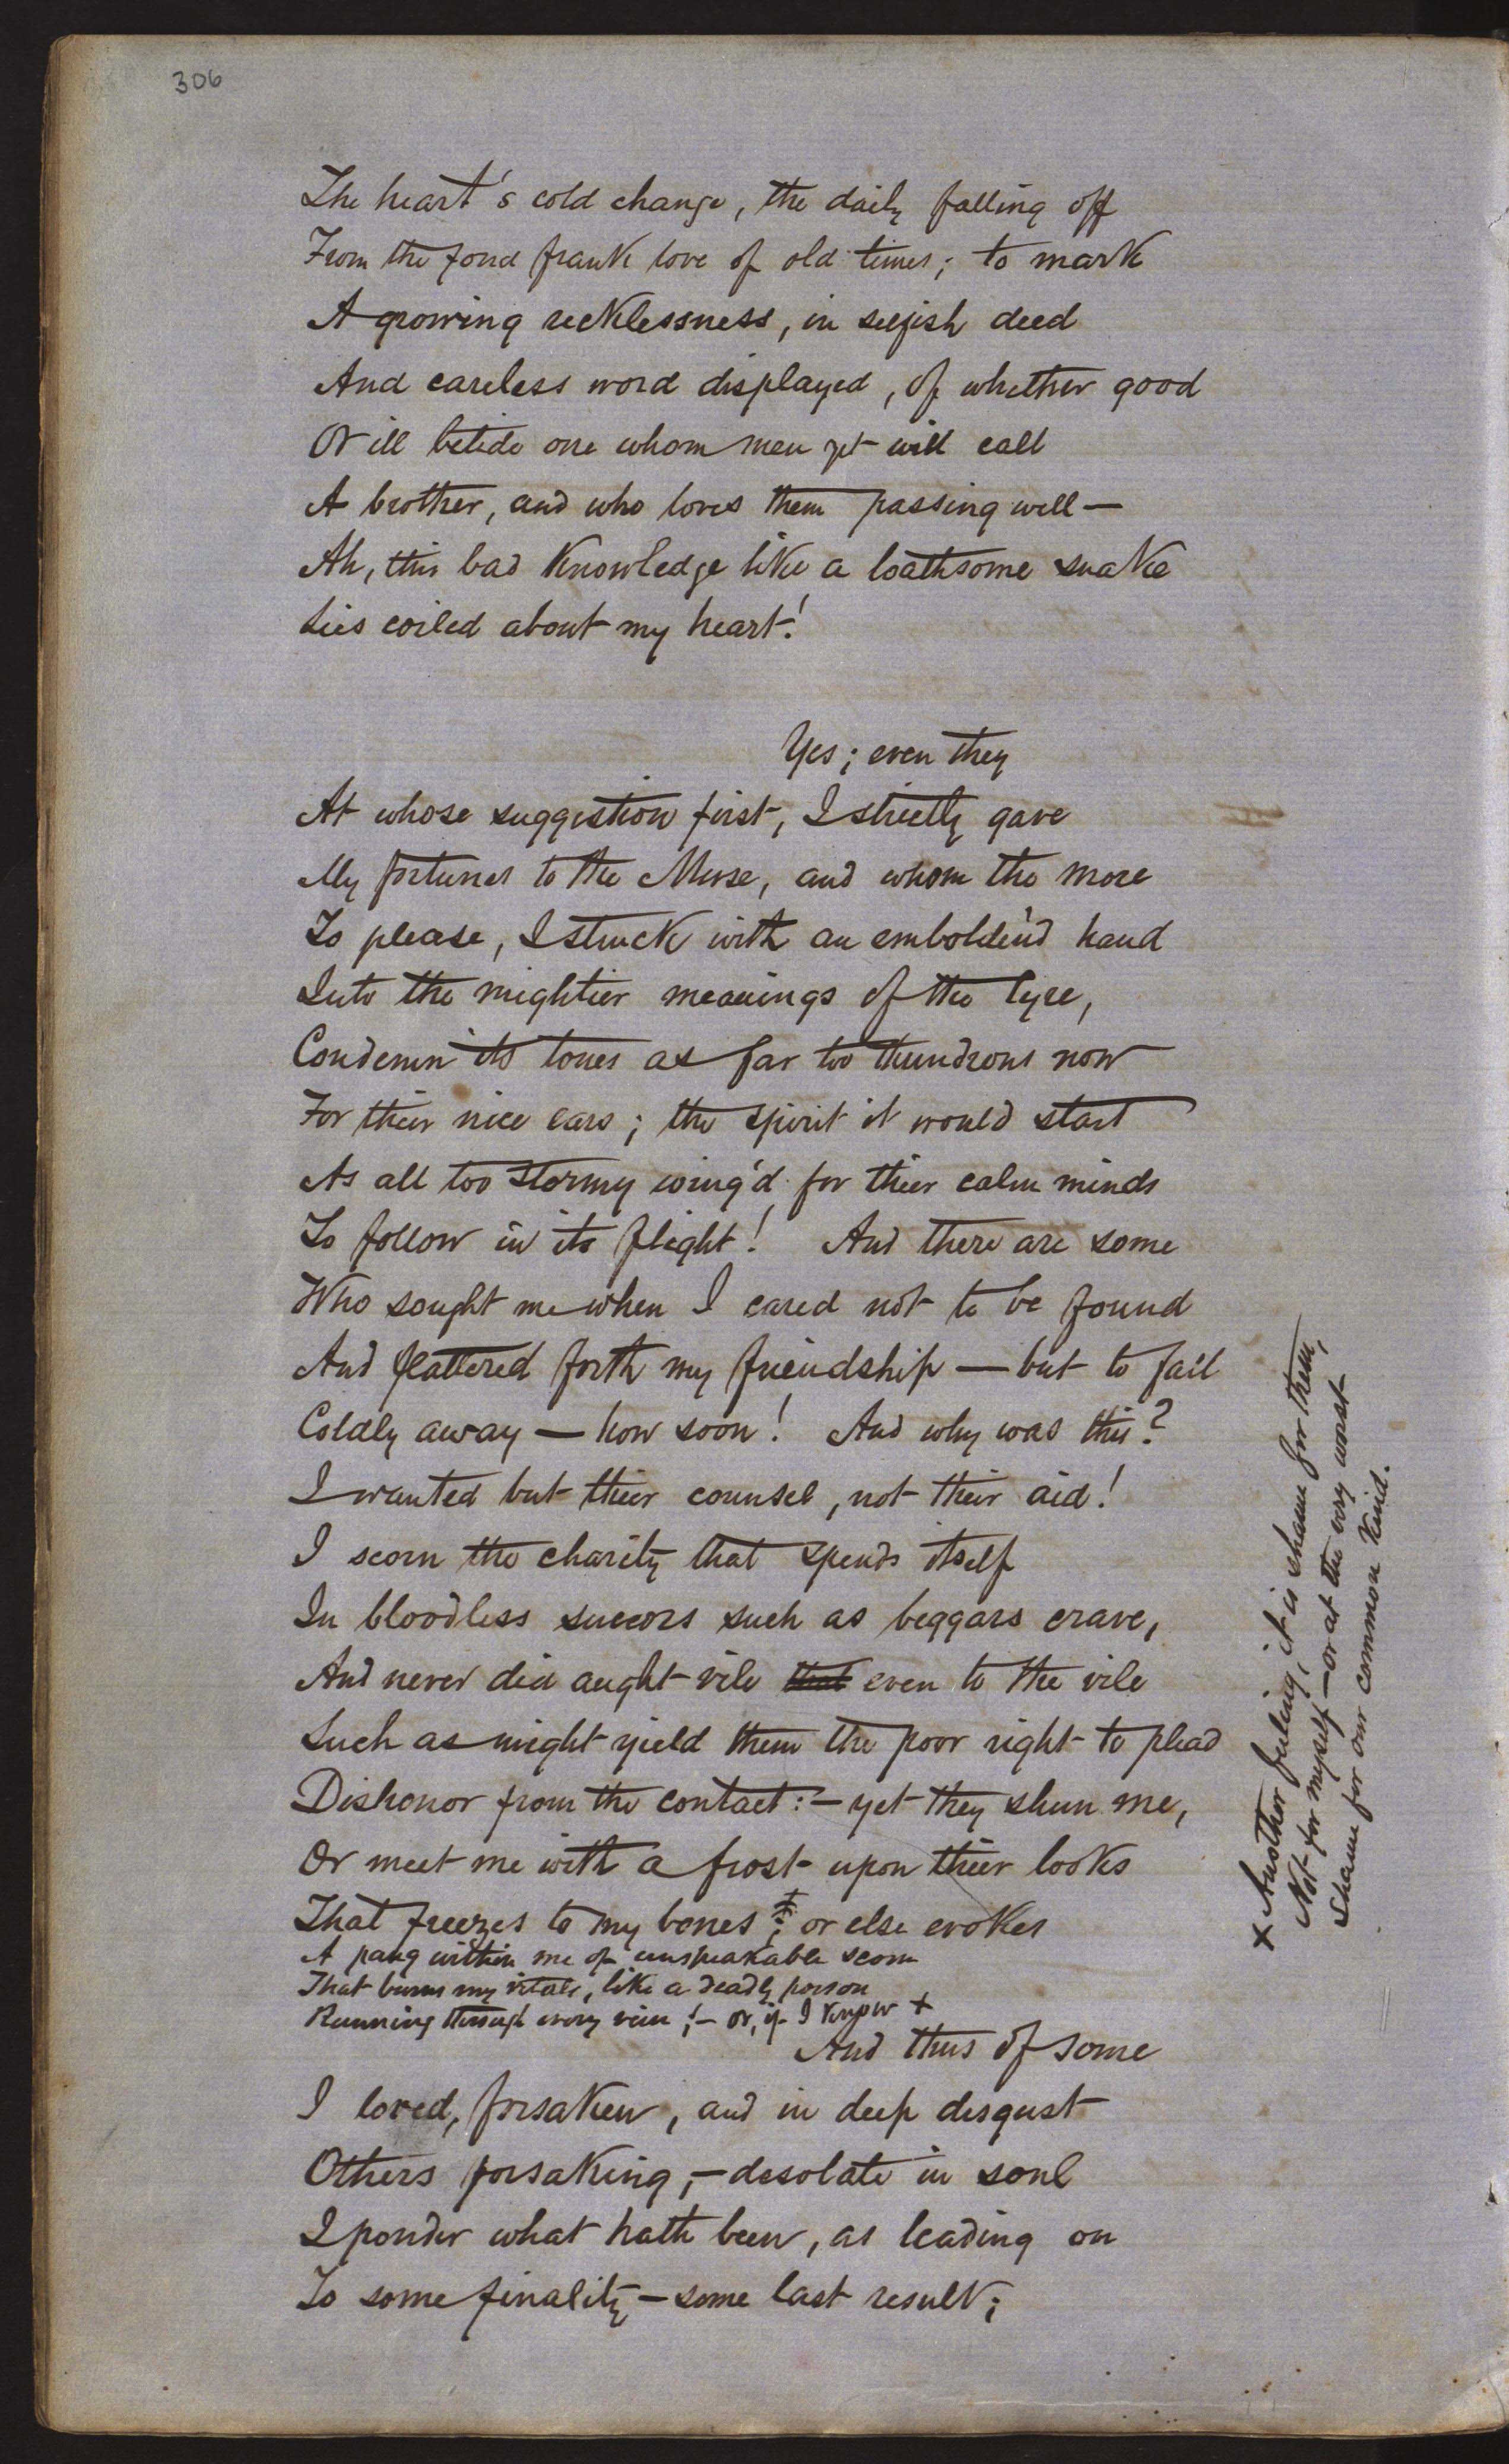 306
The heart's cold change, the daily falling off
From the fond frank love of old times; to mark
A growing recklessness, in selfish deed
And careless word displayed, of whether good
Or ill betide one whom men yet will call
A brother, and who loves them passing well —
Ah, this bad knowledge like a loathsome snake
Lies coiled about my heart!
Yes; even they
At whose suggestion first, I strictly gave
My fortunes to the Muse, and whom the more
To please, I struck with an embolden'd hand
Into the mightier meanings of the lyre,
Condemn its tones as far too thundrous now
For their nice ears; the spirit it would start
As all too stormy wing'd for their calm minds
To follow in its flight! And there are some
Who sought me when I cared not to be found
And flattered forth my friendship — but to fail
Coldly away — how soon! And why was this?
I wanted but their counsel, not their aid!
I scorn the charity that spends itself
In bloodless succors such as beggars crave,
And never did aught vile that even to the vile
Such as might yield them the poor right to plead
Dishonor from the contact: — yet they shun me,
Or meet me with a frost upon their looks
That freezes to my bones; or else evokes
A pang within me of unspeakable scorn
That burns my vitals, like a deadly poison
Running through every vein; — or, if I know +
And thus of some
I loved, forsaken, and in deep disgust
Others forsaking, — desolate in soul
I ponder what hath been, as leading on
To some finality — some last result;
+ Another feeling, it is shame for them,
Not for myself — or at the very worst
Shame for our common kind.